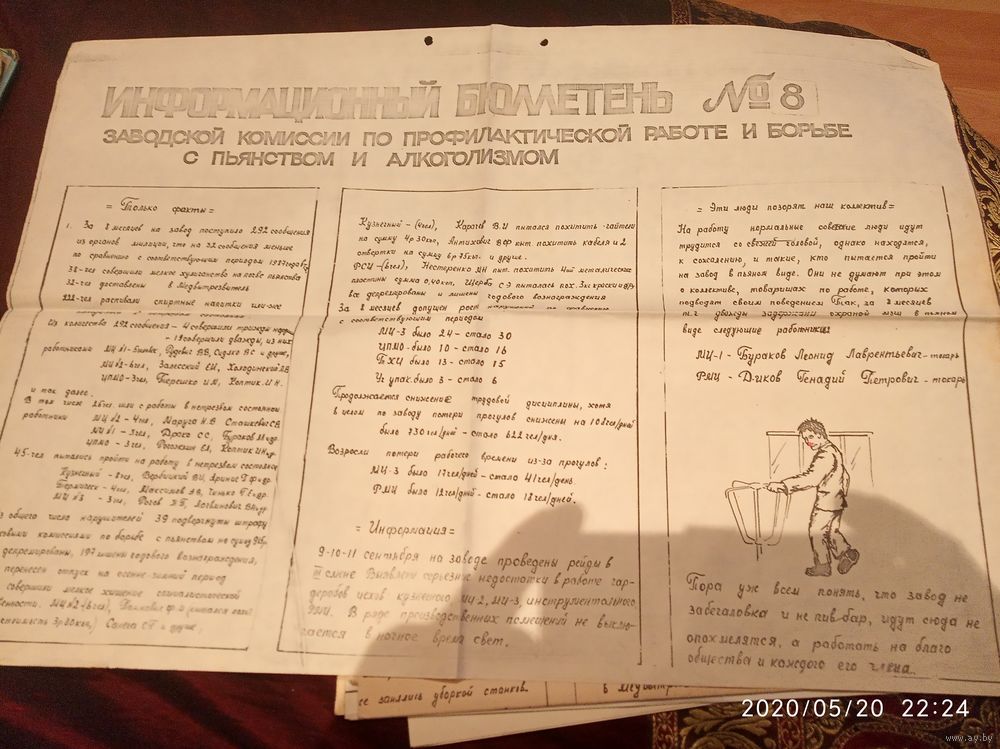 ИНФОРМАЦИОННЫЙ БЮЛЛЕТЕНЬ №8
ЗАВОДСКОЙ КОМИССИИ ПО ПРОФИЛАКТИЧЕСКОЙ РАБОТЕ И БОРЬБЕ
С ПЬЯНСТВОМ И АЛКОГОЛИЗМОМ
= Только факты =
1. За 8 месяцев на завод поступило 292 сообщения
из органов милиции, что на 32 сообщения меньше
по сравнению с соответствующим периодом 1987 года
38-чел совершили мелкое хулиганство на почве пьянства
32-чел доставлены в Медвытрезвитель
222-чел распивали спиртные напитки
Из количества 292 сообщения - 4 совершили трижды
- 19 совершили дважды, из них
работниками МЦ №1- Рудевич В.В, С и другие,
МЦ №2-6чел, Залесский Е.И, Холодинский А.В
ЦПМО-3чел, Терешко И.М, Коптик И.Н.
и так далее.
В том числе 26чел. шли с работы в нетрезвом состоянии
работники МЦ №2 - 4чел, Маруга Н.В Сташкевич С.В
МЦ №1 - 3чел, Драко С.С, Бураков
ЦПМО - 3чел, Рогожкин Е.Л, Коптик И.Н
45-чел пытались пройти на работу в нетрезвом состоянии
Кузнечный - 8чел, Вербицкий В.И,
Термическ - 4чел, Максимов А.В,
МЦ №3 - 3чел, Рогов
общего число нарушителей 39 подвергнуты штрафу
комиссиями по борьбе с пьянством на сумму
депремированы, 197 лишены годового вознаграждения,
перенесен отпуск на осенне-зимний период
совершили мелкое хищение социалистической
МЦ №2 -(6чел),
стоимость 3р 80коп,) С.Т и другие,
Кузнечный - (4чел), Карачев В.И пытался похитить гайтели
на сумму 4р 30коп, В.Ф пыт. похитить кабеля и 2
отвертки на сумму 6р 75коп. и другие.
РСЦ -(6чел), Нестеренко Д.Н пыт. похитить металические
пластины сумма 0,40коп, Щерба С.Э пыталась пох. 3кг краски и др.
все депремированы и лишены годового вознаграждения
За 8 месяцев допущен рост
с соответствующим периодом
МЦ-3 было 24 - стало 30
ЦПМО - было 10 - стало 16
БХЦ было 13 - стало 15
Уч упак. было 3 - стало 6
Продолжается снижение трудовой дисциплины, хотя
в целом по заводу потери прогулов снижены на 108чел/дней
было 730 чел/дней - стало 622 чел/дня.
Возросли потери рабочего времени из-за прогулов:
МЦ-3 было 17чел/дней - стало 41чел/день.
РМЦ было 12чел/дней - стало 18чел/дней.
= Информация =
9-10-11 сентября на заводе проведены рейды в
III смене Выявлены серьезные недостатки в работе гар-
деробов цехов кузнечного, МЦ-2, МЦ-3, инструментального
РМЦ. В ряде производственных помещений не выклю-
чается в ночное время свет.
= Эти люди позорят наш коллектив =
На работу нормальные советские люди идут
трудится со свежей головой, однако находятся,
к сожалению, и такие, кто пытается пройти
на завод в пьяном виде. Они не думают при этом
о коллективе, товарищах по работе, которых
подводят своим поведением Так, за 8 месяцев
т.г дважды задержаны охраной МЭЦ в пьяном
виде следующие работники:
МЦ-1 - Бураков Леонид Лаврентьевич - токарь
РМЦ - Диков Генадий Петрович - токарь
Пора уж всем понять, что завод не
забегаловка и не пивбар, идут сюда не
опохмелятся, а работать на благо
общества и каждого его члена.
ее занялись уборкой станков.
в Медвытр
2020/05/20 22:24
www.ay.by